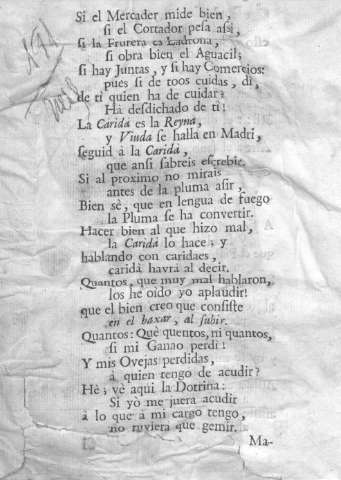 Si el Mercader mide bien,
si el Cortador pesa assi,
si la Frutera es Ladrona,
si obra bien el Aguacil;
si hay Juntas, y si hay Comercios:
pues si de toos cuidas, di,
de ti quien ha de cuidar?
Ha desdichado de ti!
La Carida es la Reyna,
y Viuda se halla en Madri,
seguid à la Carida,
que ansi sabreis escrebir.
Si al proximo no mirais
antes de la pluma asir,
Bien sè, que en lengua de fuego
la Pluma se ha convertir.
Hacer bien al que hizo mal,
la Caridà lo hace; y
hablando con caridaes,
caridà havrà al decir.
Quantos, que muy mal hablaron,
los he oido yo aplaudir!
que el bien creo que consiste
en el baxar, al subir.
Quantos: Què quentos, ni quantos,
si mi Ganao perdì!
Y mis Ovejas perdidas,
à quien tengo de acudir?
Hè; vè aqui la Dotrina:
Si yo me juera acudir
à lo que à mi cargo tengo,
no tuviera que gemir.
Ma-